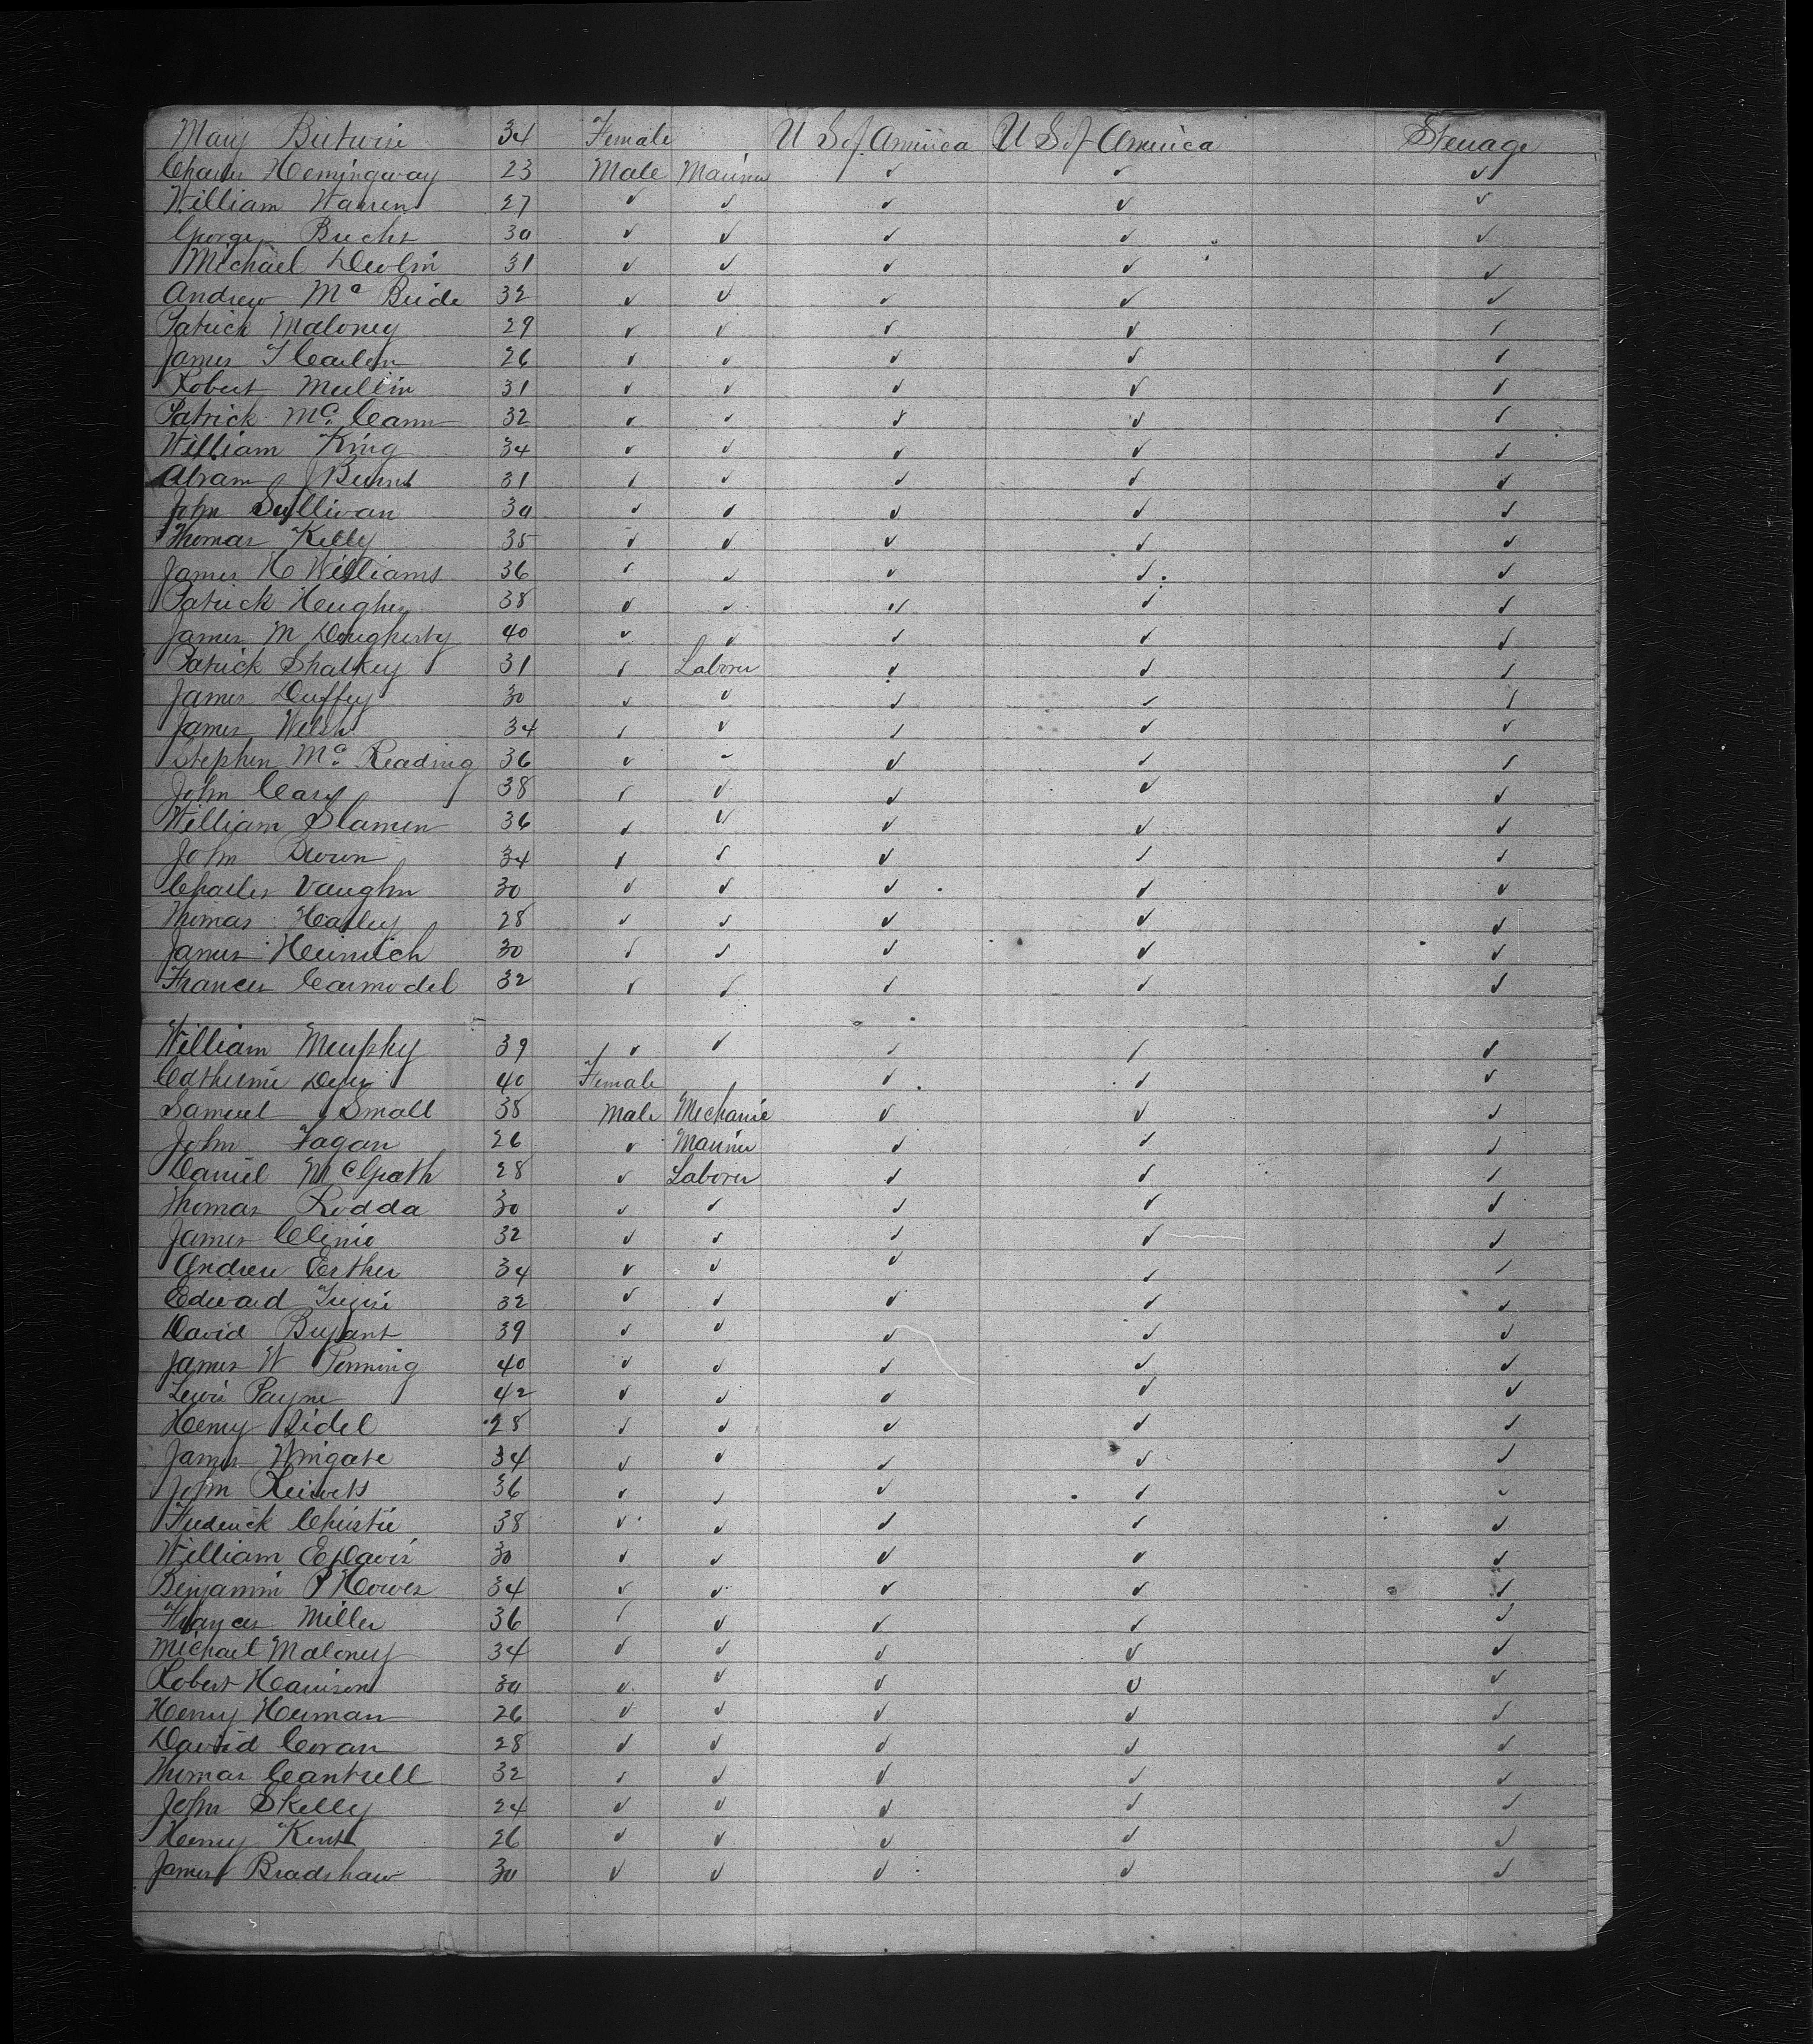 Mary 34 Female U S of America U S of America Steerage
Charles Hemingway 23 Male Mariner ✓ ✓ ✓
William Warren 27 ✓ ✓ ✓ ✓ ✓
George 30 ✓ ✓ ✓ ✓ ✓
Michael Devlin 31 ✓ ✓ ✓ ✓ ✓
Andrew Mc Bride 32 ✓ ✓ ✓ ✓ ✓
Patrick Maloney 29 ✓ ✓ ✓ ✓ ✓
James T Carlon 26 ✓ ✓ ✓ ✓ ✓
Robert Mullin 31 ✓ ✓ ✓ ✓ ✓
Patrick Mc Cann 32 ✓ ✓ ✓ ✓ ✓
William King 34 ✓ ✓ ✓ ✓ ✓
Abram Burns 31 ✓ ✓ ✓ ✓ ✓
John Sullivan 30 ✓ ✓ ✓ ✓ ✓
Thomas Kelly 35 ✓ ✓ ✓ ✓ ✓
James H Williams 36 ✓ ✓ ✓ ✓ ✓
Patrick Hughes 38 ✓ ✓ ✓ ✓ ✓
James M Dougherty 40 ✓ ✓ ✓ ✓ ✓
Patrick Shalkey 31 ✓ Laborer ✓ ✓ ✓
James Duffey 30 ✓ ✓ ✓ ✓ ✓
James Welsh 34 ✓ ✓ ✓ ✓ ✓
Stephen Mc Reading 36 ✓ ✓ ✓ ✓ ✓
John Cary 38 ✓ ✓ ✓ ✓ ✓
William Slamen 36 ✓ ✓ ✓ ✓ ✓
John 34 ✓ ✓ ✓ ✓ ✓
Charles Vaughn 30 ✓ ✓ ✓ ✓ ✓
Thomas Hatley 28 ✓ ✓ ✓ ✓ ✓
James 30 ✓ ✓ ✓ ✓ ✓
Frances Carmodel 32 ✓ ✓ ✓ ✓ ✓
William Murphy 39 ✓ ✓ ✓ ✓ ✓
Catherine Dyer 40 Female ✓ ✓ ✓
Samuel Small 38 Male Mechanic ✓ ✓ ✓
John Fagan 26 ✓ Mariner ✓ ✓ ✓
Daniel McGrath 28 ✓ Laborer ✓ ✓ ✓
Thomas Rodda 30 ✓ ✓ ✓ ✓ ✓
James Clinic 32 ✓ ✓ ✓ ✓ ✓
Andrew Esther 34 ✓ ✓ ✓ ✓ ✓
Edward 32 ✓ ✓ ✓ ✓ ✓
David Bryant 39 ✓ ✓ ✓ ✓ ✓
James W Penning 40 ✓ ✓ ✓ ✓ ✓
Lewis Payne 42 ✓ ✓ ✓ ✓ ✓
Henry Sidel 28 ✓ ✓ ✓ ✓ ✓
James Wingate 34 ✓ ✓ ✓ ✓ ✓
John 36 ✓ ✓ ✓ ✓ ✓
Frederick Christie 38 ✓ ✓ ✓ ✓ ✓
William E Davis 30 ✓ ✓ ✓ ✓ ✓
Benjamin P Howes 34 ✓ ✓ ✓ ✓ ✓
Frances Miller 36 ✓ ✓ ✓ ✓ ✓
Michael Maloney 34 ✓ ✓ ✓ ✓ ✓
Robert Harrison 30 ✓ ✓ ✓ ✓ ✓
Henry Herman 26 ✓ ✓ ✓ ✓ ✓
David Coran 28 ✓ ✓ ✓ ✓ ✓
Thomas Cantrell 32 ✓ ✓ ✓ ✓ ✓
John Skelly 24 ✓ ✓ ✓ ✓ ✓
Henry Kent 26 ✓ ✓ ✓ ✓ ✓
James Bradshaw 30 ✓ ✓ ✓ ✓ ✓